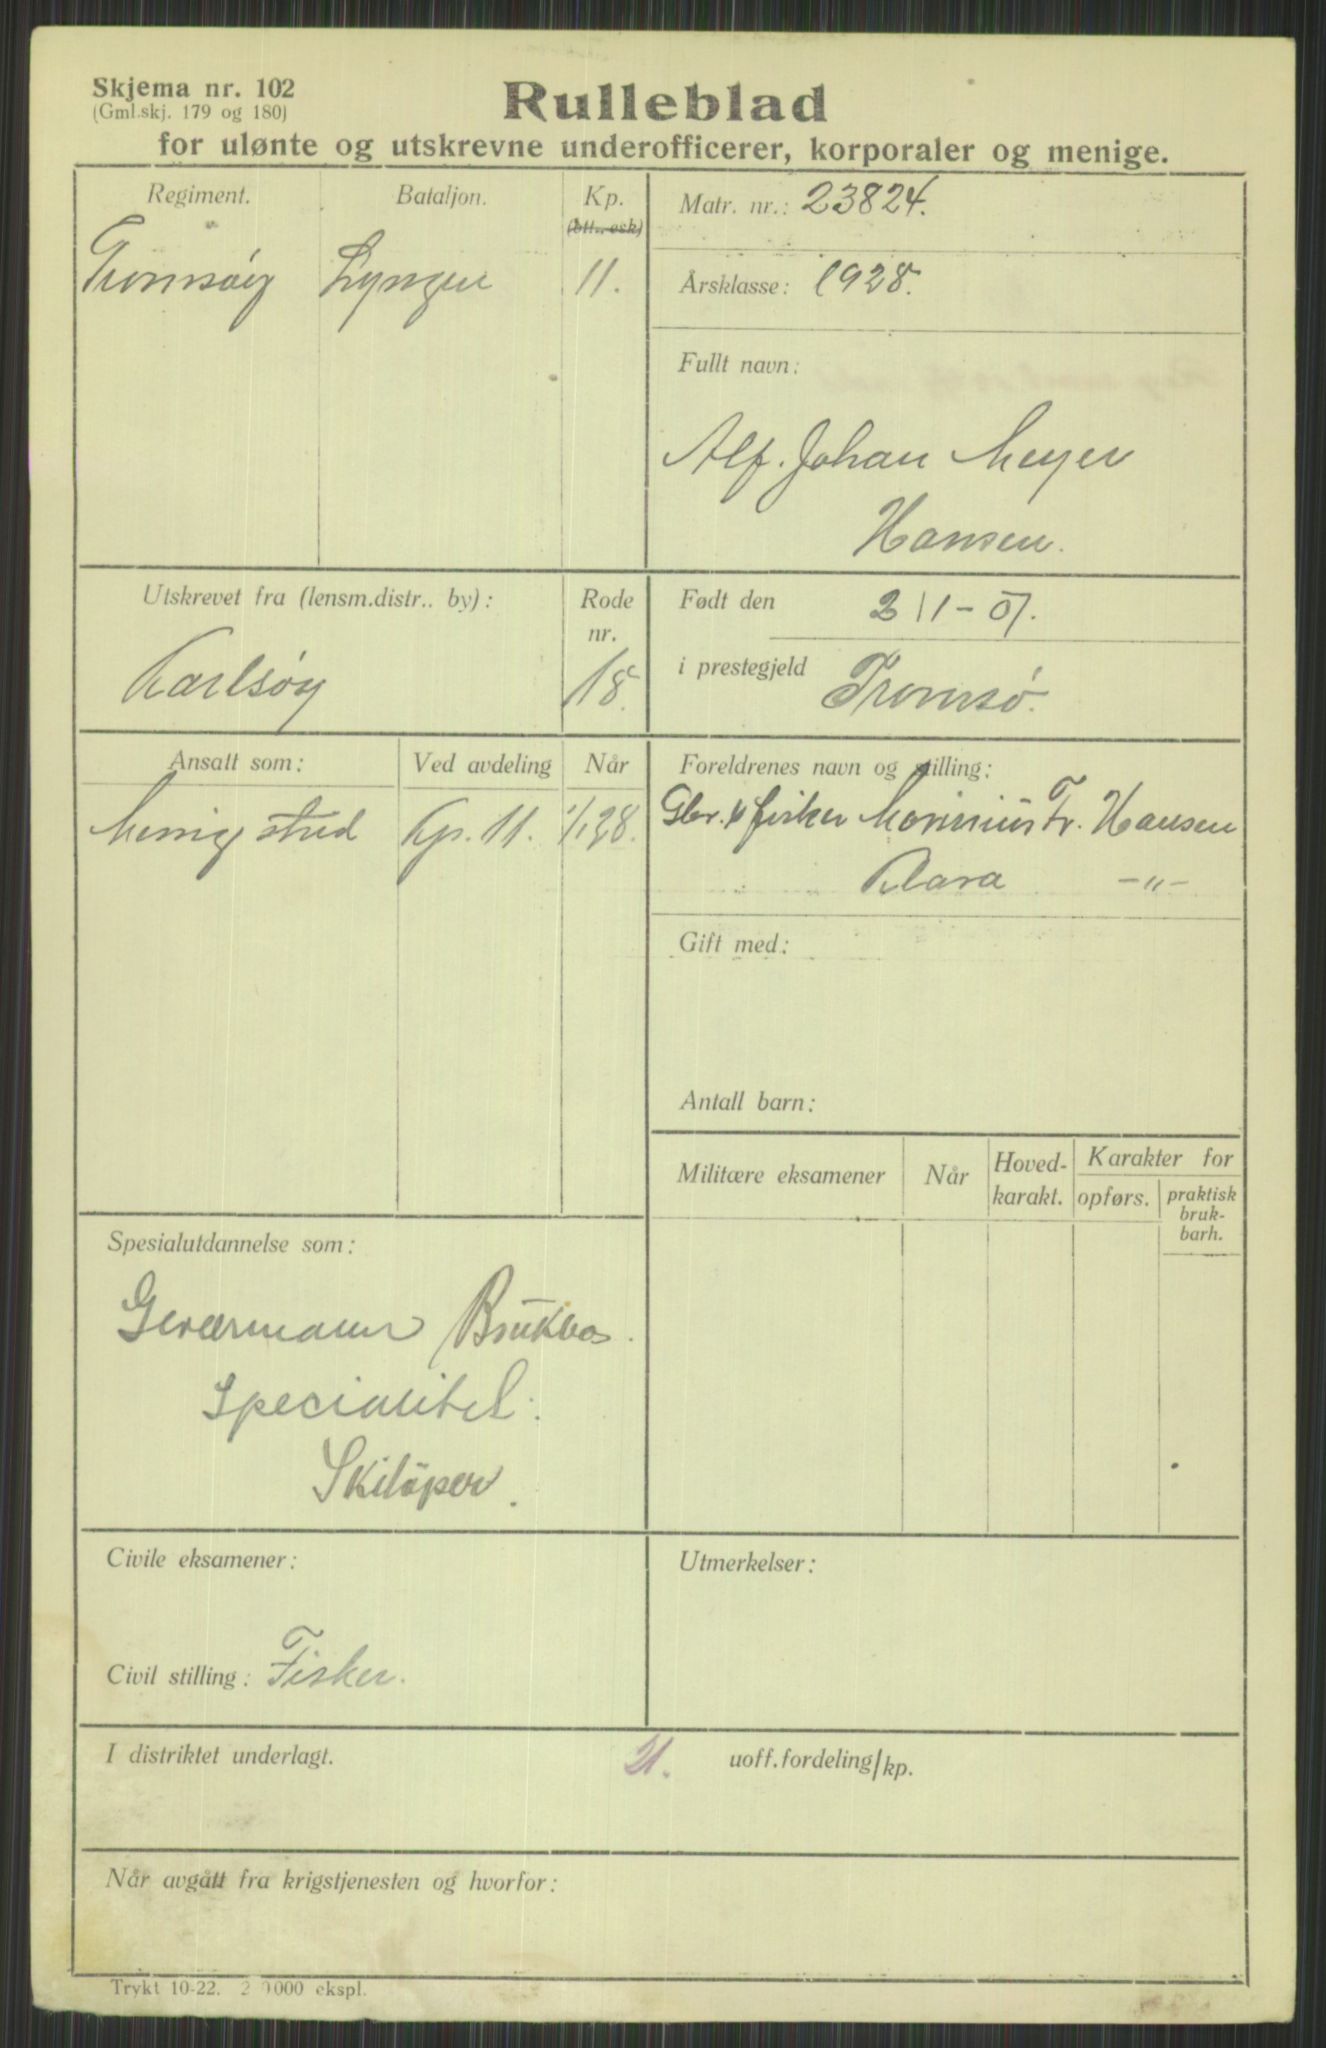 Skjema nr. 102
(Gml.skj. 179 og 180)
Rulleblad
for ulønte og utskrevne underofficerer, korporaler og menige.
Regiment. Bataljon. Kp.
(btt., esk)
Tromsöy Lyngen 11.
Matr. nr.: 23824.
Årsklasse: 1928.
Fullt navn:
Alf. Johan Meyer
Hansen.
Utskrevet fra (lensm.distr.. by): Rode nr.
Karlsöy 18.
Født den 2 11-07.
i prestegjeld Tromsö.
Ansatt som: Ved avdeling Når
Menig Kp. 11. 1/1 28.
Foreldrenes navn og stilling:
Gbr. fisker Fr. Hansen
Klara -"-
Gift med:
Antall barn:
Militære eksamener Når Hoved-karakt. Karakter for
opførs. praktisk bruk-barh.
Spesialutdannelse som:
Geværmann
Specialitet:
Skilöper.
Civile eksamener:
Civil stilling: Fisker.
Utmerkelser:
I distriktet underlagt. 21. uoff.fordeling/kp.
Når avgått fra krigstjenesten og hvorfor:
Trykt 10-22. 2 0000 ekspl.